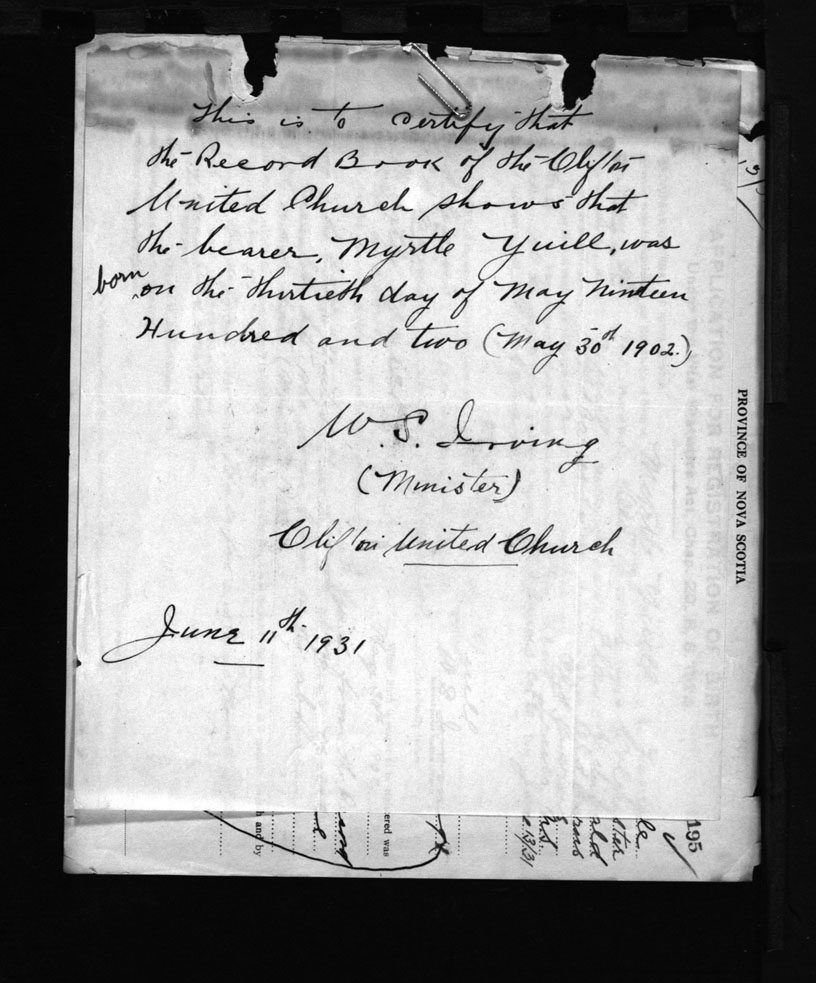 This is to certify that
the Record Book of the Clifton
United Church shows that
the bearer, Myrtle Yuill, was
born on the thirtieth day of May Ninteen
Hundred and two (May 30th 1902.)
W. S. Irving
(Minister)
Clifton United Church
June 11th 1931
PROVINCE OF NOVA SCOTIA
195
ered was
h and by